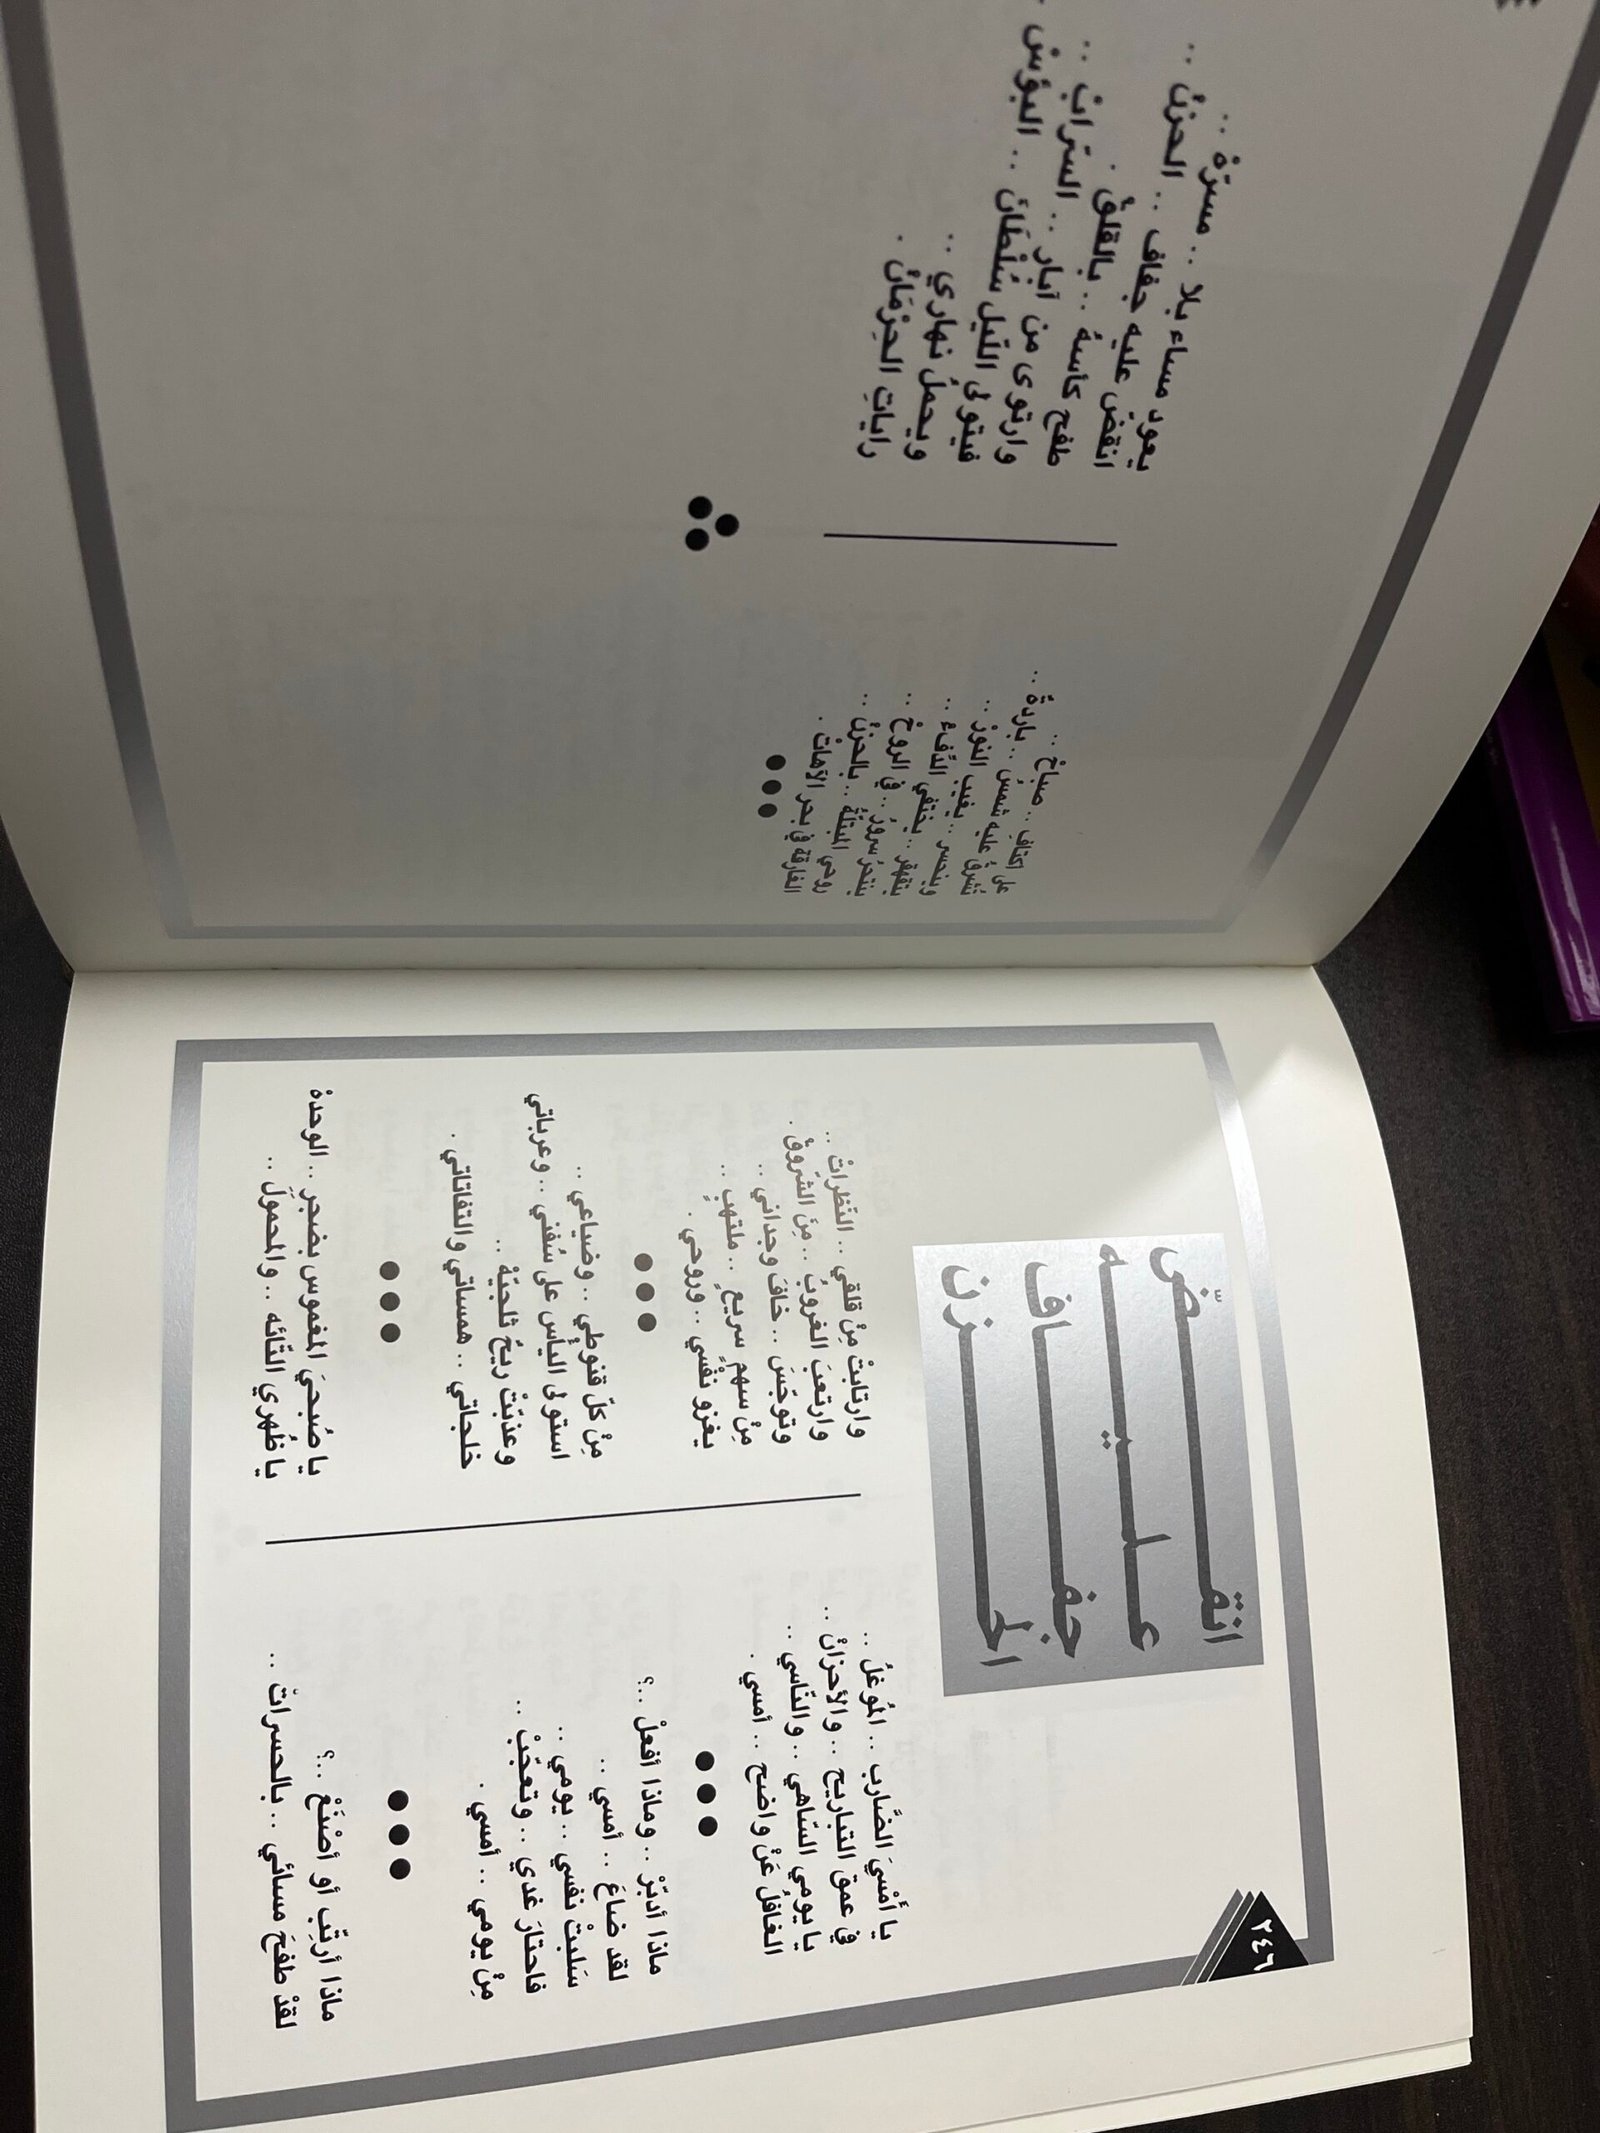 ٢٤٦
انقــضّ
عـلـيـه
جفــاف
الحــزن
يا أمْسيَ الضَّارب .. المُوغلُ ..
في عمق التباريح .. والأحزانْ ..
يا يومي السّاهي .. والنّاسي ..
الغافلُ عَنْ واضح .. أمسي .
ماذا أدبّرْ .. وماذا أفعلْ ..؟
لقد ضاعَ .. أمسي ..
سَلبتْ نفسي .. يومي ..
فاحتارَ غدي .. وتعجّبْ ..
مِنْ يومي .. أمسي .
ماذا أرتّب أو أصْنَعْ ..؟
لقدْ طفحَ مسائي .. بالحسراتْ ..
وارتابتْ مِنْ قلقي .. النّظراتْ ..
وارتعبَ الغروبُ .. مِنَ الشروقْ .
وتوجّسَ .. خافَ وجداني ..
مِنْ سهْمٍ سريعٍ .. ملتهبٍ ..
يغزو نفْسي .. وروحي .
مِنْ كلّ قنوطي .. وضياعي ..
استولى اليأس على سُفني .. وعرباتي
وعذبّتْ ريحٌ ثلجيّهْ ..
خلجاتي .. همساتي والتفاتاتي .
يا صُبحيَ المغموس بضجرِ .. الوحدهْ
يا ظُهري التّائه .. والمحمولِ ..
على أكتافِ .. صباحْ ..
تُشرقُ عليه شمسٌ .. باردةٌ ..
وينحسر .. يغيب النورْ ..
يتقهقر .. يختفي الدّفءْ ..
ينتحرُ سرورٌ .. في الروحْ ..
روحي المبتلّةُ .. بالحزنْ ..
الغارقة في بحر الآهاتْ .
يعود مساء بلا .. مسرّةْ ..
انقضّ عليه جفاف .. الحزنْ ..
طفح كأسهُ .. بالقلقْ .
وارتوى من آبار .. السّرابْ ..
فيتولى الليل سُلْطَانَ .. البؤسْ ..
ويحملُ نهاري ..
راياتِ الحِرْمَانْ .